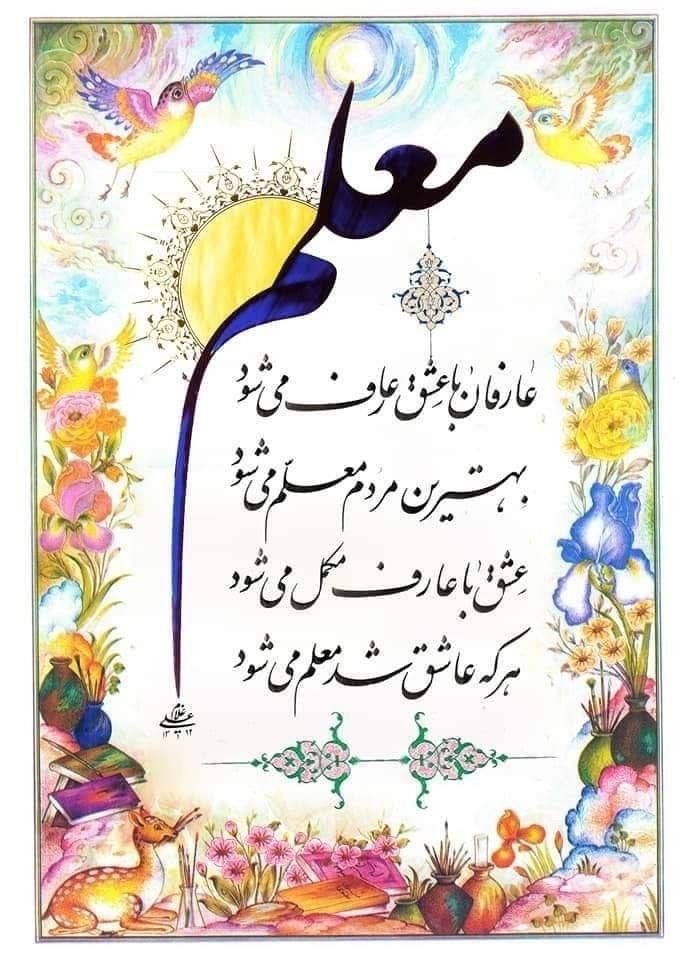 معلم
عارفان با عشق عارف می شود
بهترین مردم معلّم می شود
عشق با عارف مکمل می شود
هر که عاشق شد معلم می شود
غلامعلی